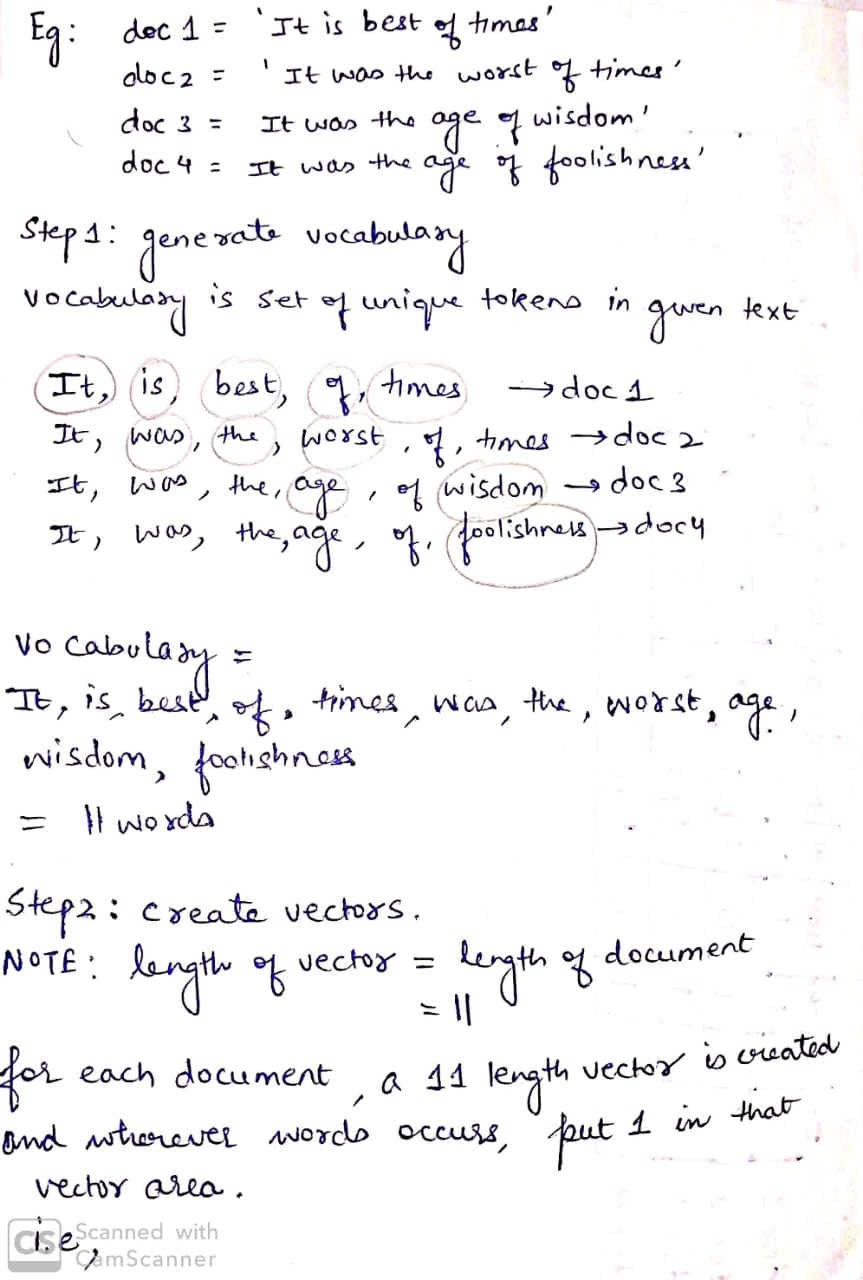 Eg: doc 1 = 'It is best of times'
doc 2 = 'It was the worst of times'
doc 3 = It was the age of wisdom'
doc 4 = It was the age of foolishness'
Step 1: generate vocabulary
vocabulary is set of unique tokens in given text
It, is, best, of, times → doc 1
It, was, the, worst, of, times → doc 2
It, was, the, age, of wisdom → doc 3
It, was, the, age, of, foolishness → doc 4
vocabulary =
It, is, best, of, times, was, the, worst, age,
wisdom, foolishness
= 11 words
Step 2: create vectors.
NOTE: length of vector = length of document
= 11
for each document, a 11 length vector is created
and wherever words occurs, put 1 in that
vector area.
i.e,
CS Scanned with
CamScanner